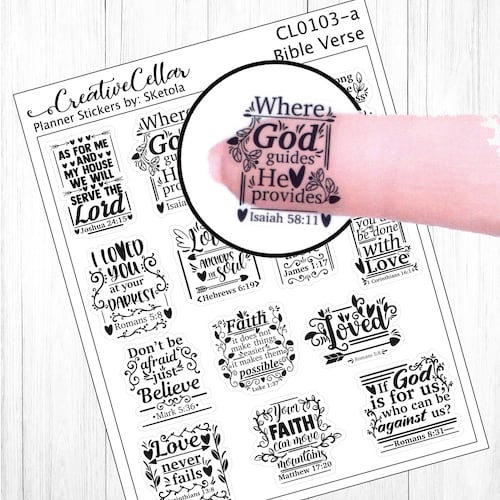 CL0103-a
Bible Verse
CreativeCellar
Planner Stickers by: SKetola
AS FOR ME
AND
MY HOUSE
WE WILL
SERVE THE
Lord
Joshua 24:15
Where
God
guides
He
provides
Isaiah 58:11
I LOVED
YOU
at your
DARKEST
Romans 5:8
soul
Hebrews 6:19
James 1:17
be done
with
Love
Corinthians 16:14
Don't be
afraid
just
Believe
Mark 5:36
Faith
it does not
make things
easier
it makes them
possible
Luke 1:37
Loved
Romans 5:8
If God
is for us
who can be
against us?
Romans 8:31
Your
FAITH
can move
mountains
Matthew 17:20
Love
never
fails